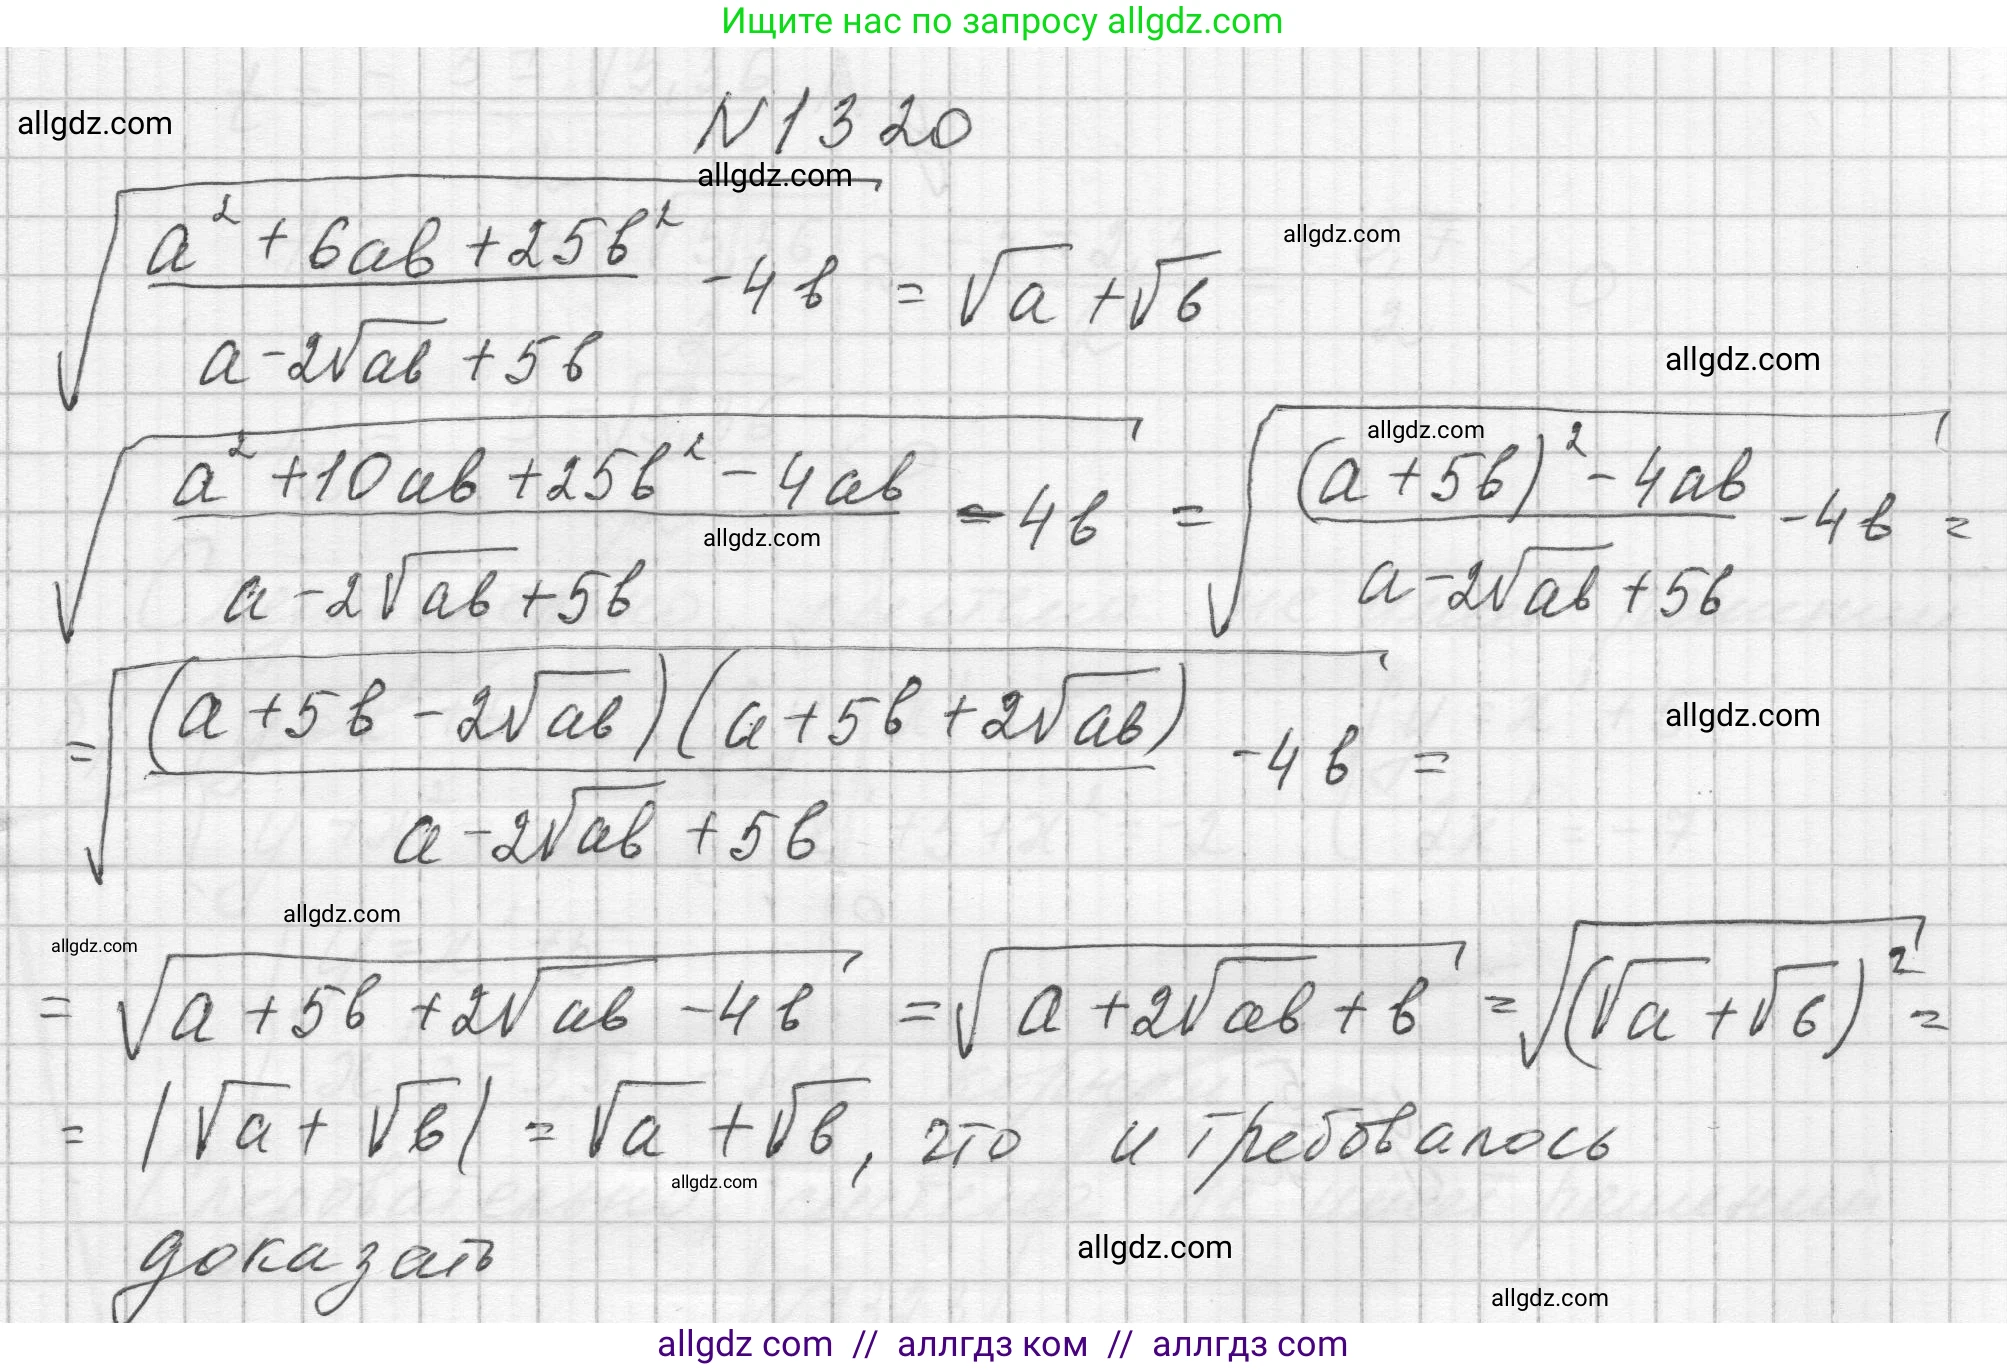 Ищите нас по запросу allgdz.com
allgdz.com
N 1320
allgdz.com
√((a² + 6ab + 25b²)/(a - 2√ab + 5b) - 4b) = √a + √b
allgdz.com
allgdz.com
allgdz.com
√((a² + 10ab + 25b² - 4ab)/(a - 2√ab + 5b) - 4b) = √(((a + 5b)² - 4ab)/(a - 2√ab + 5b) - 4b) =
allgdz.com
= √(((a + 5b - 2√ab)(a + 5b + 2√ab))/(a - 2√ab + 5b) - 4b) =
allgdz.com
allgdz.com
allgdz.com
= √(a + 5b + 2√ab - 4b) = √(a + 2√ab + b) = √((√a + √b)²) =
= |√a + √b| = √a + √b, что и требовалось
allgdz.com
доказать
allgdz.com
allgdz.com
allgdz com // аллгдз ком // аллгдз com